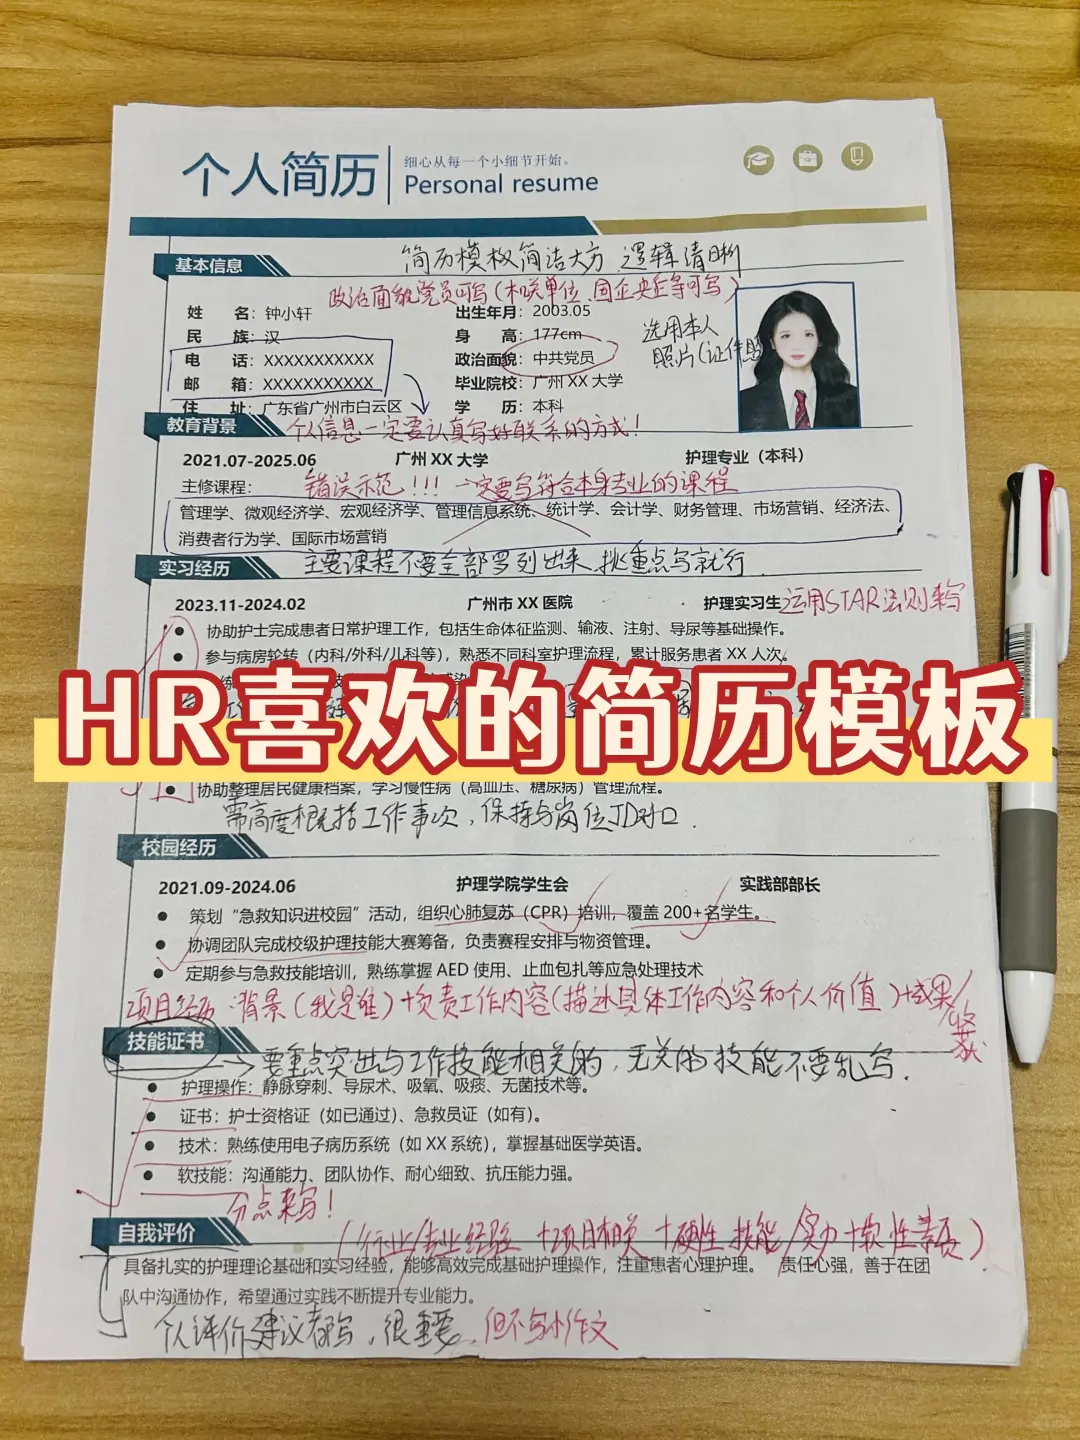 个人简历
细心从每一个小细节开始。
Personal resume
简历模板简洁大方 逻辑清晰
基本信息
政治面貌党员可写(相关单位、国企央企等可写)
姓 名：钟小轩
出生年月：2003.05
民 族：汉
身 高：177cm
选用本人
照片(证件照
电 话：XXXXXXXXXXX
政治面貌：中共党员
邮 箱：XXXXXXXXXXX
毕业院校：广州 XX 大学
住 址：广东省广州市白云区
学 历：本科
教育背景
个人信息一定要认真写好联系的方式!
2021.07-2025.06 广州 XX 大学 护理专业（本科）
主修课程：
错误示范!!! 一定要写符合本身专业的课程
管理学、微观经济学、宏观经济学、管理信息系统、统计学、会计学、财务管理、市场营销、经济法、
消费者行为学、国际市场营销
主要课程不要全部罗列出来,挑重点写就行.
实习经历
2023.11-2024.02 广州市 XX 医院 护理实习生
运用STAR法则来写
协助护士完成患者日常护理工作，包括生命体征监测、输液、注射、导尿等基础操作。
参与病房轮转（内科/外科/儿科等），熟悉不同科室护理流程，累计服务患者 XX 人次。
HR喜欢的简历模板
协助整理居民健康档案，学习慢性病（高血压、糖尿病）管理流程。
需高度概括工作事次,保持与岗位JD对口.
校园经历
2021.09-2024.06 护理学院学生会 实践部部长
策划“急救知识进校园”活动，组织心肺复苏（CPR）培训，覆盖 200+名学生。
协调团队完成校级护理技能大赛筹备，负责赛程安排与物资管理。
定期参与急救技能培训，熟练掌握 AED 使用、止血包扎等应急处理技术
项目经历:背景(我是谁)+负责工作内容(描述具体工作内容和个人价值)+成果/收获
技能证书
要重点突出与工作技能相关的,无关的技能不要乱写.
护理操作：静脉穿刺、导尿术、吸氧、吸痰、无菌技术等。
证书：护士资格证（如已通过）、急救员证（如有）。
技术：熟练使用电子病历系统（如 XX 系统），掌握基础医学英语。
软技能：沟通能力、团队协作、耐心细致、抗压能力强。
分点来写!
自我评价
(行业/专业经验+项目相关+硬性技能/实力+软性素质)
具备扎实的护理理论基础和实习经验，能够高效完成基础护理操作，注重患者心理护理。 责任心强，善于在团
队中沟通协作，希望通过实践不断提升专业能力。
个人评价建议都写,很重要,但不写小作文